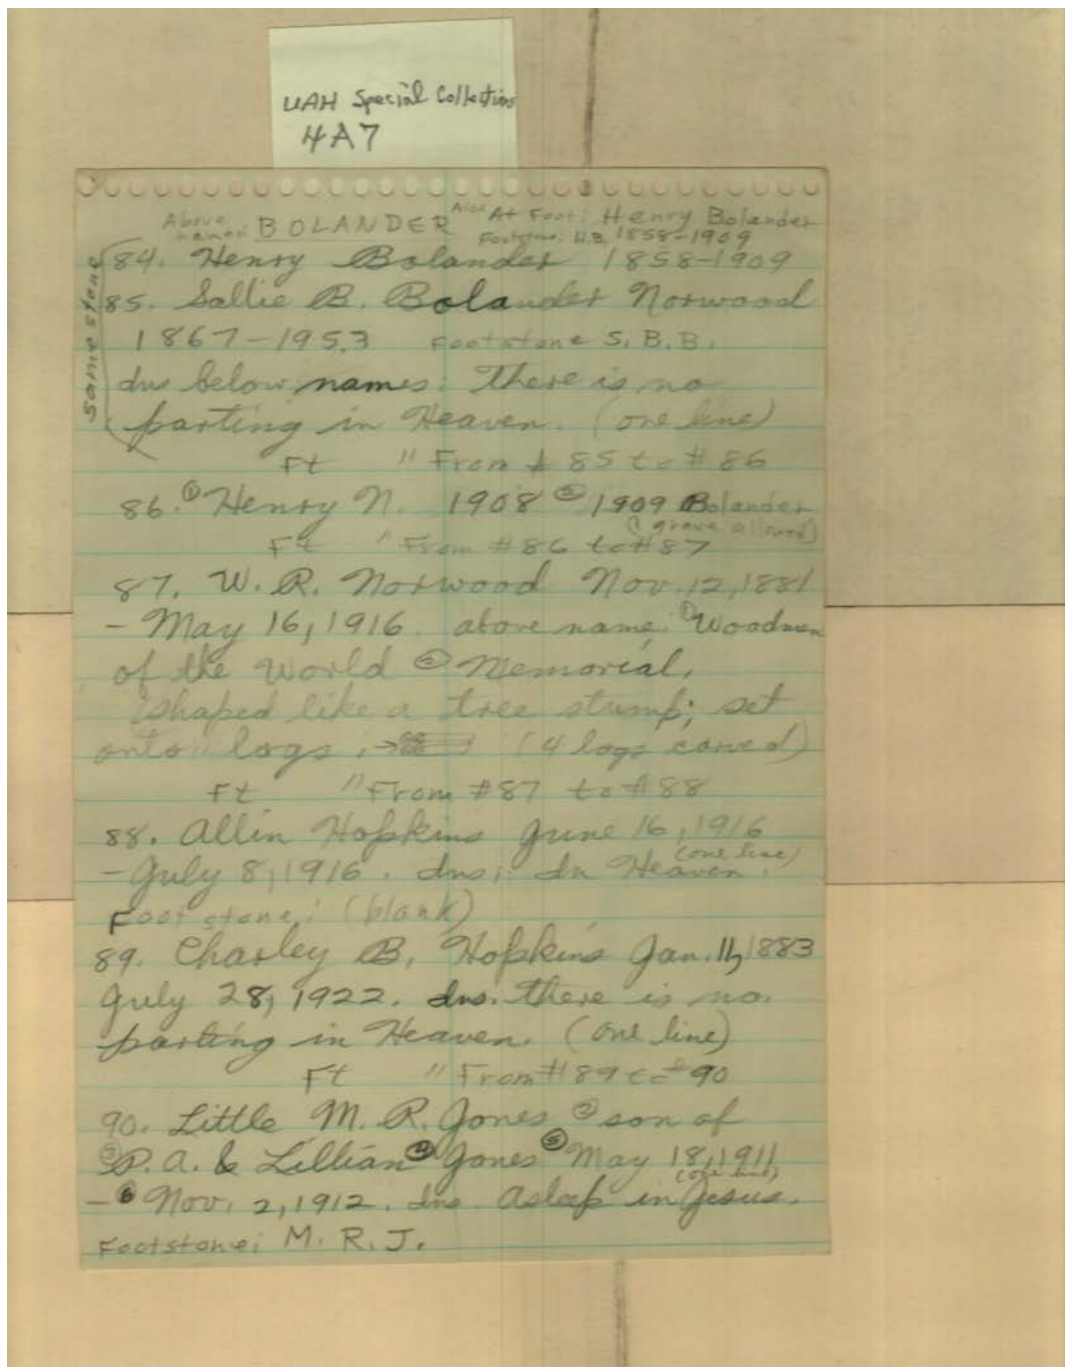 UAH Special Collections
4A7
Above names: BOLANDER Also At Foot: Henry Bolander
Footstone: H.B. 1858-1909
same stone
84. Henry Bolander 1858-1909
85. Sallie B. Bolander Norwood
1867-1953 Footstone S. B. B.
Ins below names: There is no
parting in Heaven. (one line)
Ft " From # 85 to # 86
86. ① Henry N. 1908 ② 1909 Bolander
(1 grave allowed)
Ft " From #86 to #87
87. W. R. Norwood Nov. 12, 1881
- May 16, 1916. above name: ① Woodmen
of the World ② Memorial.
shaped like a tree stump; set
onto logs. → (4 logs carved)
Ft " From #87 to #88
88. Allin Hopkins June 16, 1916
(one line)
- July 8, 1916. Ins: In Heaven.
Footstone: (blank)
89. Charley B. Hopkins Jan. 11, 1883
July 28, 1922. Ins. There is no
parting in Heaven. (one line)
Ft " From #89 to #90
90. Little M. R. Jones ② son of
③ P. A. & Lillian ④ Jones ⑤ May 18, 1911
(one line)
- ⑥ Nov. 2, 1912. Ins Asleep in Jesus.
Footstone: M. R. J.